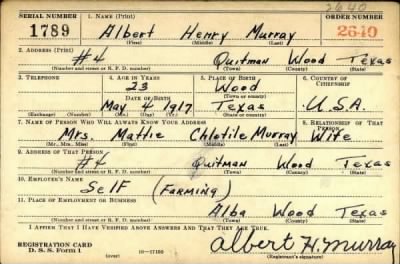 2640
SERIAL NUMBER 1. NAME (Print) ORDER NUMBER
1789 Albert Henry Murray 2640
(First) (Middle) (Last)
2. ADDRESS (Print)
#4 Quitman Wood Texas
(Number and street or R. F. D. number) (Town) (County) (State)
3. TELEPHONE 4. AGE IN YEARS 5. PLACE OF BIRTH 6. COUNTRY OF CITIZENSHIP
23 Wood
(Town or county)
DATE OF BIRTH
May 4 1917 Texas U.S.A.
(Exchange) (Number) (Mo.) (Day) (Yr.) (State or country)
7. NAME OF PERSON WHO WILL ALWAYS KNOW YOUR ADDRESS 8. RELATIONSHIP OF THAT PERSON
Mrs. Mattie Chlotile Murray Wife
(Mr., Mrs., Miss) (First) (Middle) (Last)
9. ADDRESS OF THAT PERSON
#4 Quitman Wood Texas
(Number and street or R. F. D. number) (Town) (County) (State)
10. EMPLOYER'S NAME
Self (Farming)
11. PLACE OF EMPLOYMENT OR BUSINESS
Alba Wood Texas
(Number and street or R. F. D. number) (Town) (County) (State)
I AFFIRM THAT I HAVE VERIFIED ABOVE ANSWERS AND THAT THEY ARE TRUE.
REGISTRATION CARD
D. S. S. Form 1 (over) Albert H. Murray
(Registrant's signature)